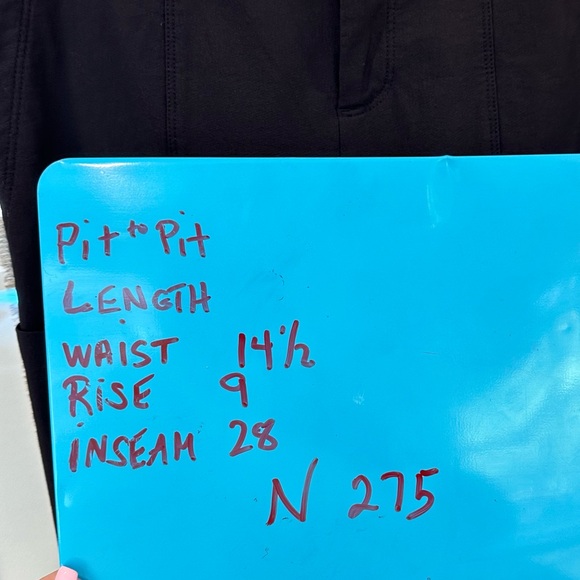 Pit to Pit
LENGTH
WAIST 14 1/2
RiSE 9
iNSEAM 28
N 275